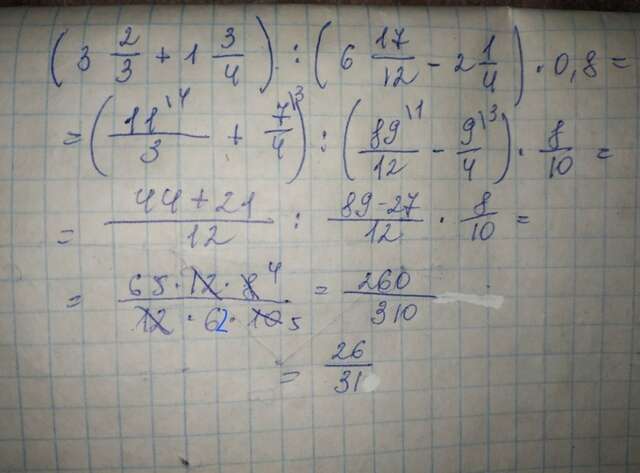 (3 2/3 + 1 3/4) : (6 17/12 - 2 1/4) · 0,8 =
= (11\4/3 + 7\3/4) : (89\1/12 - 9\3/4) · 8/10 =
= 44+21/12 : 89-27/12 · 8/10 =
= 65·12·8 4/12·62·10 5 = 260/310
= 26/31